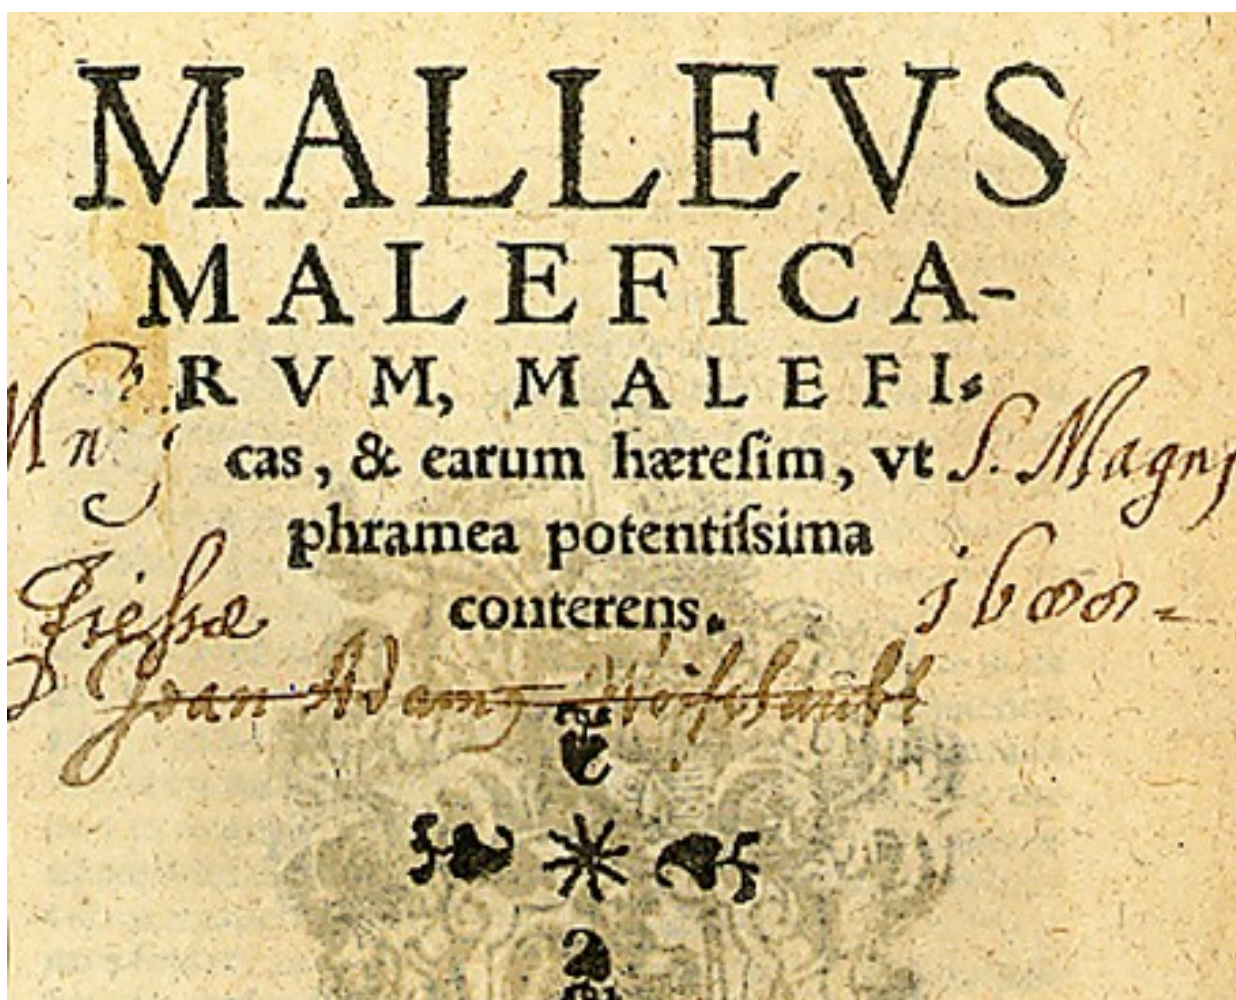 MALLEVS
MALEFICA-
RVM, MALEFI-
cas, & earum hæreſim, vt
S. Magnj
phramea potentiſsima
conterens.
1600-
Joan Adam